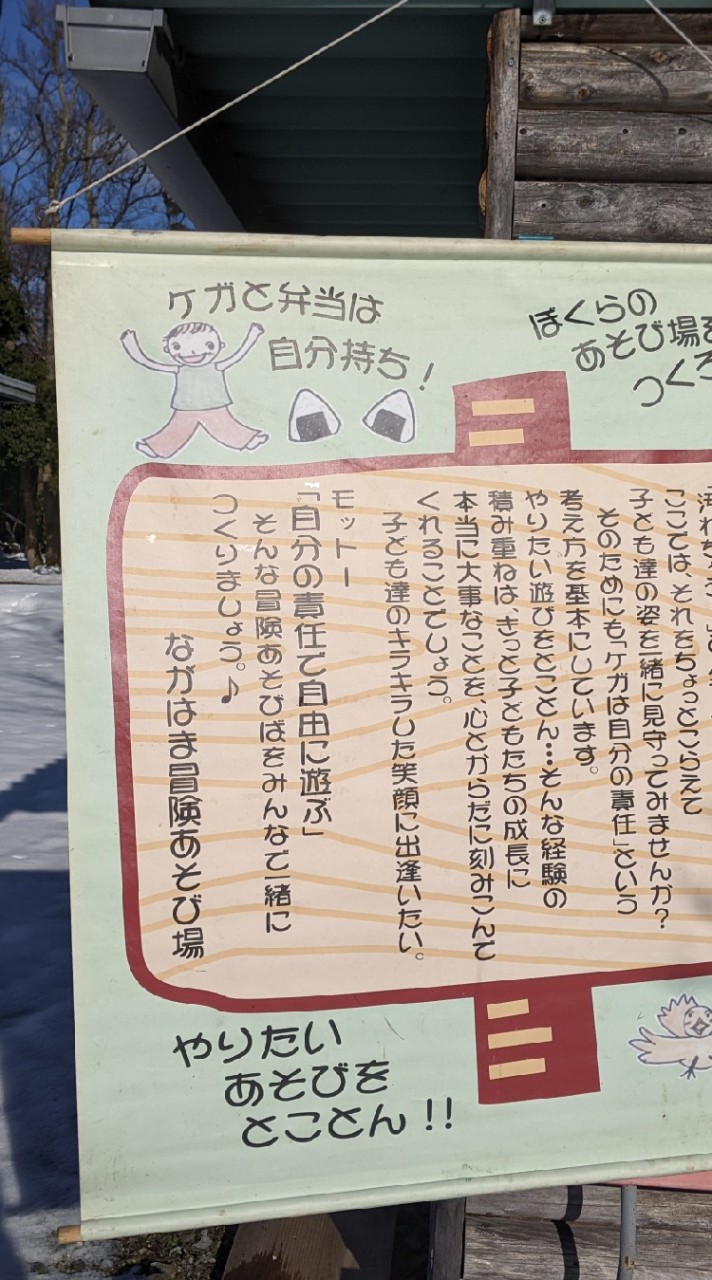 ケガと弁当は
自分持ち!
ぼくらの
あそび場を
つくろ
ここでは、それをちょっとこらえて
子ども達の姿を一緒に見守ってみませんか?
そのためにも「ケガは自分の責任」という
考え方を基本にしています。
やりたい遊びをとことん…そんな経験の
積み重ねは、きっと子どもたちの成長に
本当に大事なことを、心とからだに刻みこんで
くれることでしょう。
子ども達のキラキラした笑顔に出逢いたい。
モットー
「自分の責任で自由に遊ぶ」
そんな冒険あそびばをみんなで一緒に
つくりましょう。♪
ながはま冒険あそび場
やりたい
あそびを
とことん!!